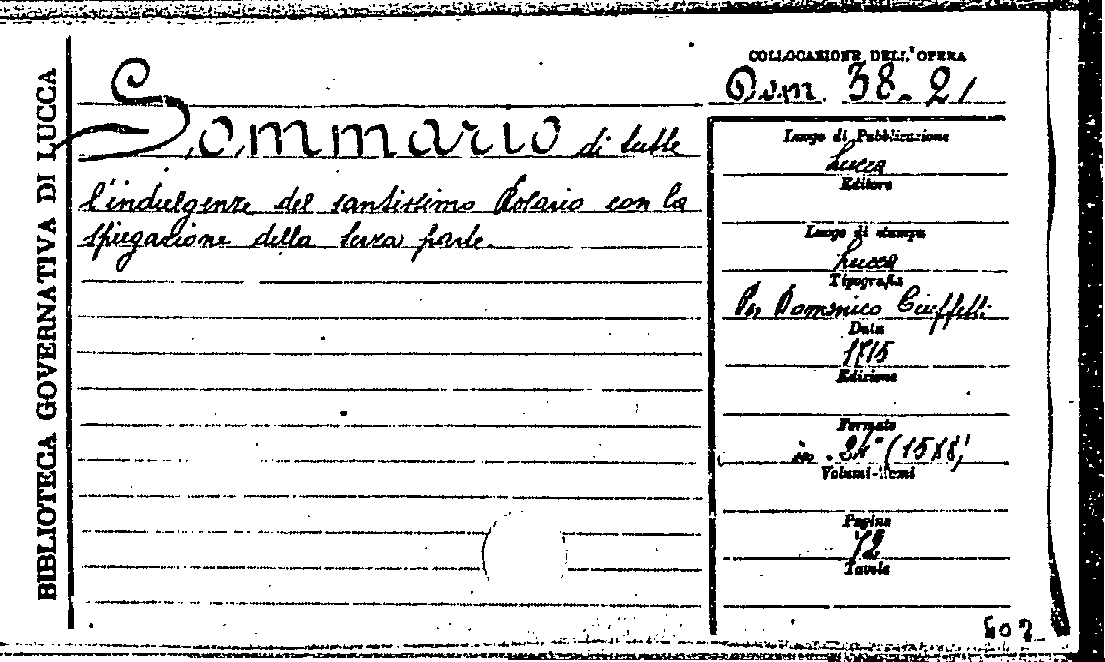 BIBLIOTECA GOVERNATIVA DI LUCCA
Sommario di tutte
l'indulgenze del santissimo Rosario con la
spiegazione della terza parte.
COLLOCAZIONE DELL'OPERA
38. 21
Luogo di Pubblicazione
Lucca
Editore
Luogo di stampa
Lucca
Tipografia
Domenico Ciuffetti
Data
1715
Edizione
Formato
in 24° (15X8)
Volumi-Tomi
Pagine
72
Tavole